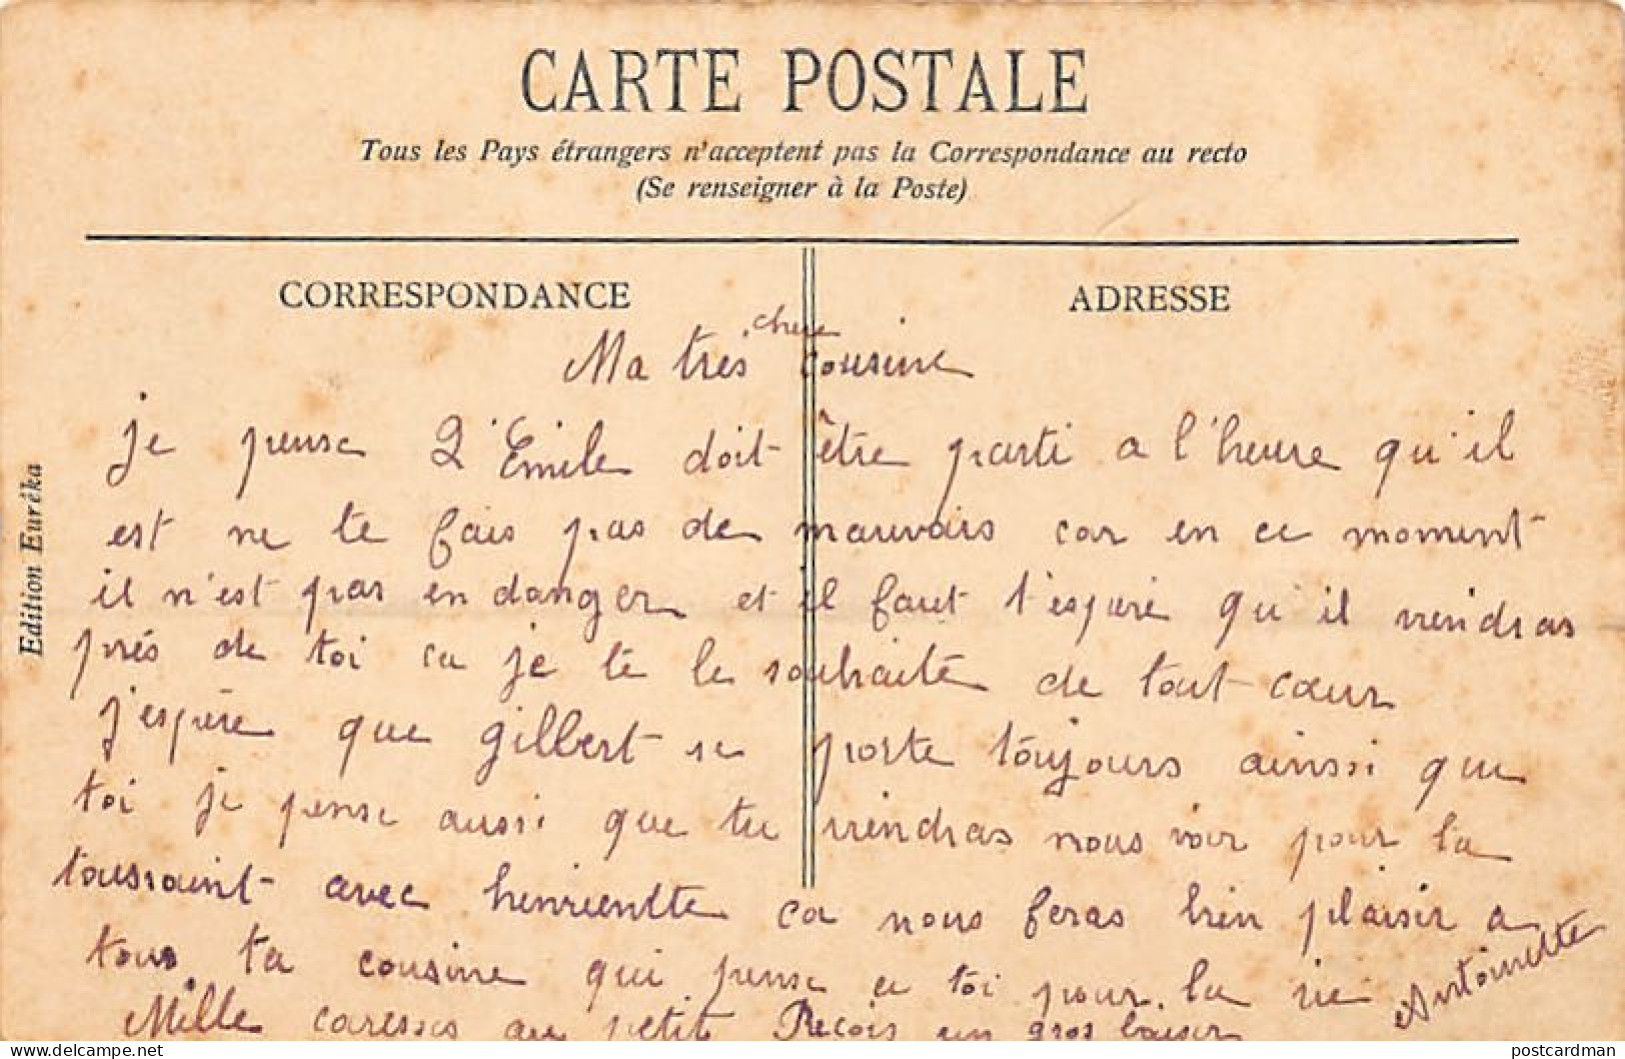 CARTE POSTALE
Tous les Pays étrangers n'acceptent pas la Correspondance au recto
(Se renseigner à la Poste)
CORRESPONDANCE
ADRESSE
Edition Euréka
Ma très chere cousine
je pense Q'Emile doit être parti a l'heure qu'il
est ne te fais pas de mauvais car en ce moment
il n'est pas en danger et il faut l'esperé qu'il viendras
prés de toi ca je te le souhaite de tout cœur
j'espère que gilbert se porte toujours ainssi que
toi je pense aussi que tu viendras nous voir pour la
toussaint avec henrientte ca nous feras bien plaisir a
tous ta cousine qui pense a toi pour la vie Antoinette
Mille caresses au petit Recois un gros baiser
delcampe.net
postcardman